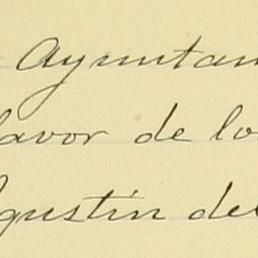 Ayuntam
favor de lo
Agustín del